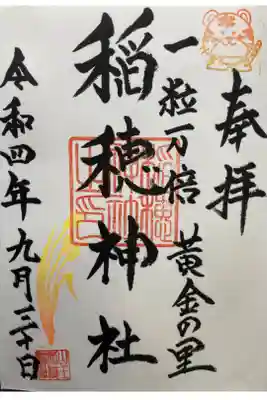 奉拝
一粒万倍 黄金の里
稲穂神社
令和四年九月三十日